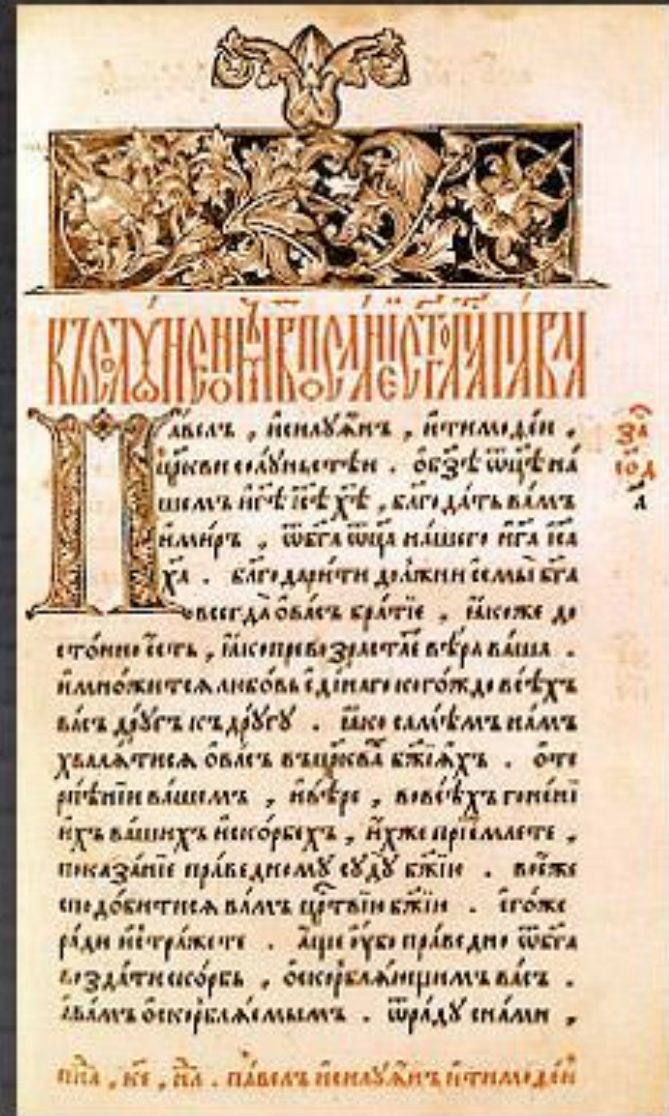 КъСолꙋнеѡм в҃ Посланїе ст҃го ап҃ла Павла
Павелъ , и҆силꙋа́нъ , и҆тимоѳе́и ,
цр҃кви солꙋ́ньстѣи . ѡ҆бз҃ѣ ѿц҃ѣ на́
шемъ и҆г҃ѣ і҆с҃ѣ хр҃ѣ , блг҃ода́ть ва́мъ
и҆ми́ръ , ѿбг҃а ѿц҃а на́шего и҆г҃а і҆с҃а
х҃а . блг҃одари́ти до́лжни є҆смы̀ бг҃а
всегда̀ ѡ҆ва́съ бра́тїе , ꙗ҆́коже до
сто́йно є҆́сть , ꙗ҆́ко превозраста́е вѣ́ра ва́ша .
и҆мно́житсѧ любо́вь є҆ди́наго кого́ждо всѣ́хъ
ва́съ дрꙋ́гъ къдрꙋ́гꙋ . ꙗ҆́ко самѣ́мъ на́мъ
хвали́тисѧ ѡ҆ва́съ въцр҃ква бж҃їѧхъ . ѡ҆те
рпѣ́нїи ва́шемъ , и҆вѣ́ре , вовсѣ́хъ гоне́нї
и҆хъ ва́шихъ и҆ско́рбехъ , и҆́хже прїе́млете ,
показа́нїе пра́ведномꙋ сꙋдꙋ̀ бж҃їю . во́еже
сподо́битисѧ ва́мъ црⷭ҇твїю бж҃їю . є҆го́же
ра́ди и҆стра́жете . а҆́ще ᲂу҆́бо пра́ведно ѿбг҃а
возда́ти ско́рбь , ѡ҆скорблѧ́ющимъ ва́съ .
а҆ва́мъ ѡ҆скорблѧ́емымъ . ѿра́дꙋ сна́ми ,
за҃
павелъ и҆силꙋа́нъ и҆тимоѳе́и